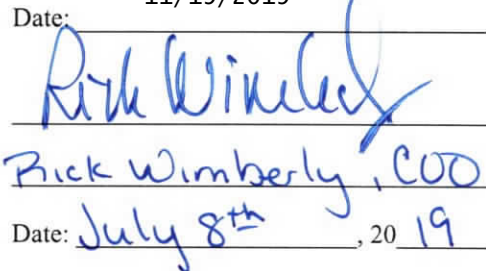 11/19/2019
Date:
Rick Wimberly
Rick Wimberly, COO
Date: July 8th, 2019